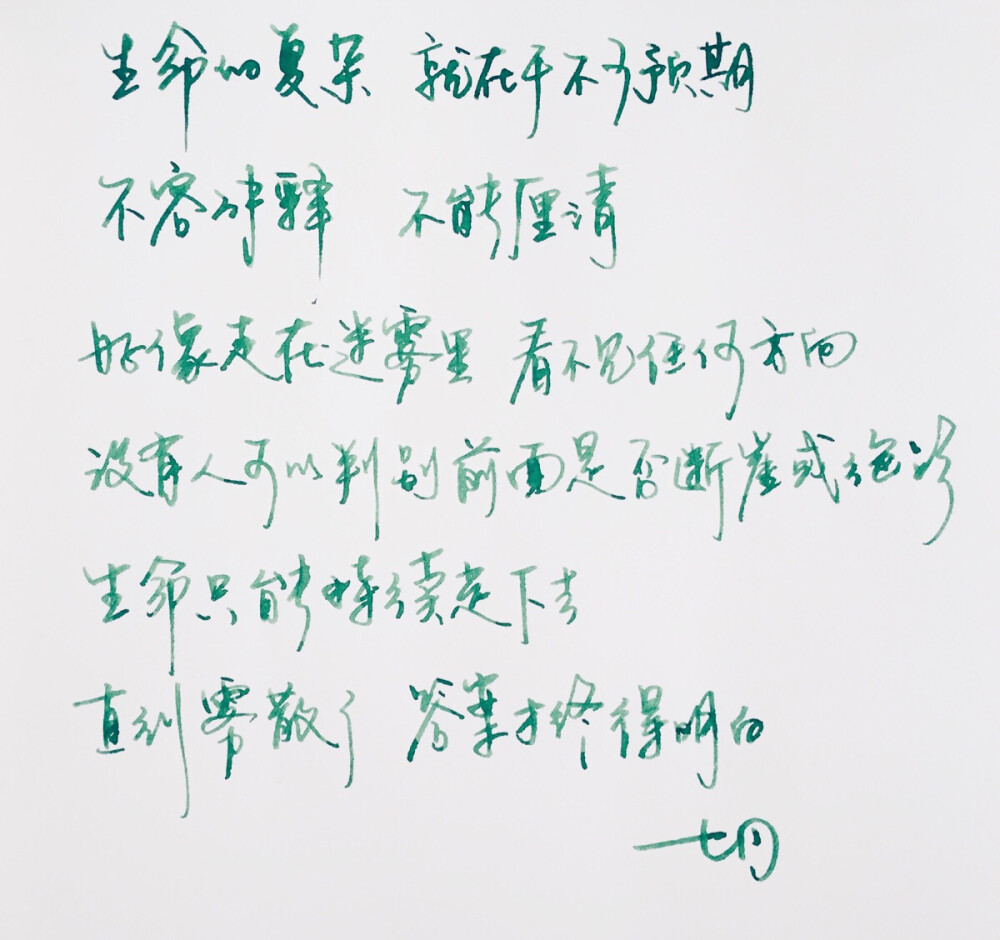 生命的复杂 就在于不可预期
不容解释 不能厘清
好像走在迷雾里 看不见任何方向
没有人可以判别前面是否断崖或绝谷
生命只能持续走下去
直到雾散了 答案才终得明白
七月